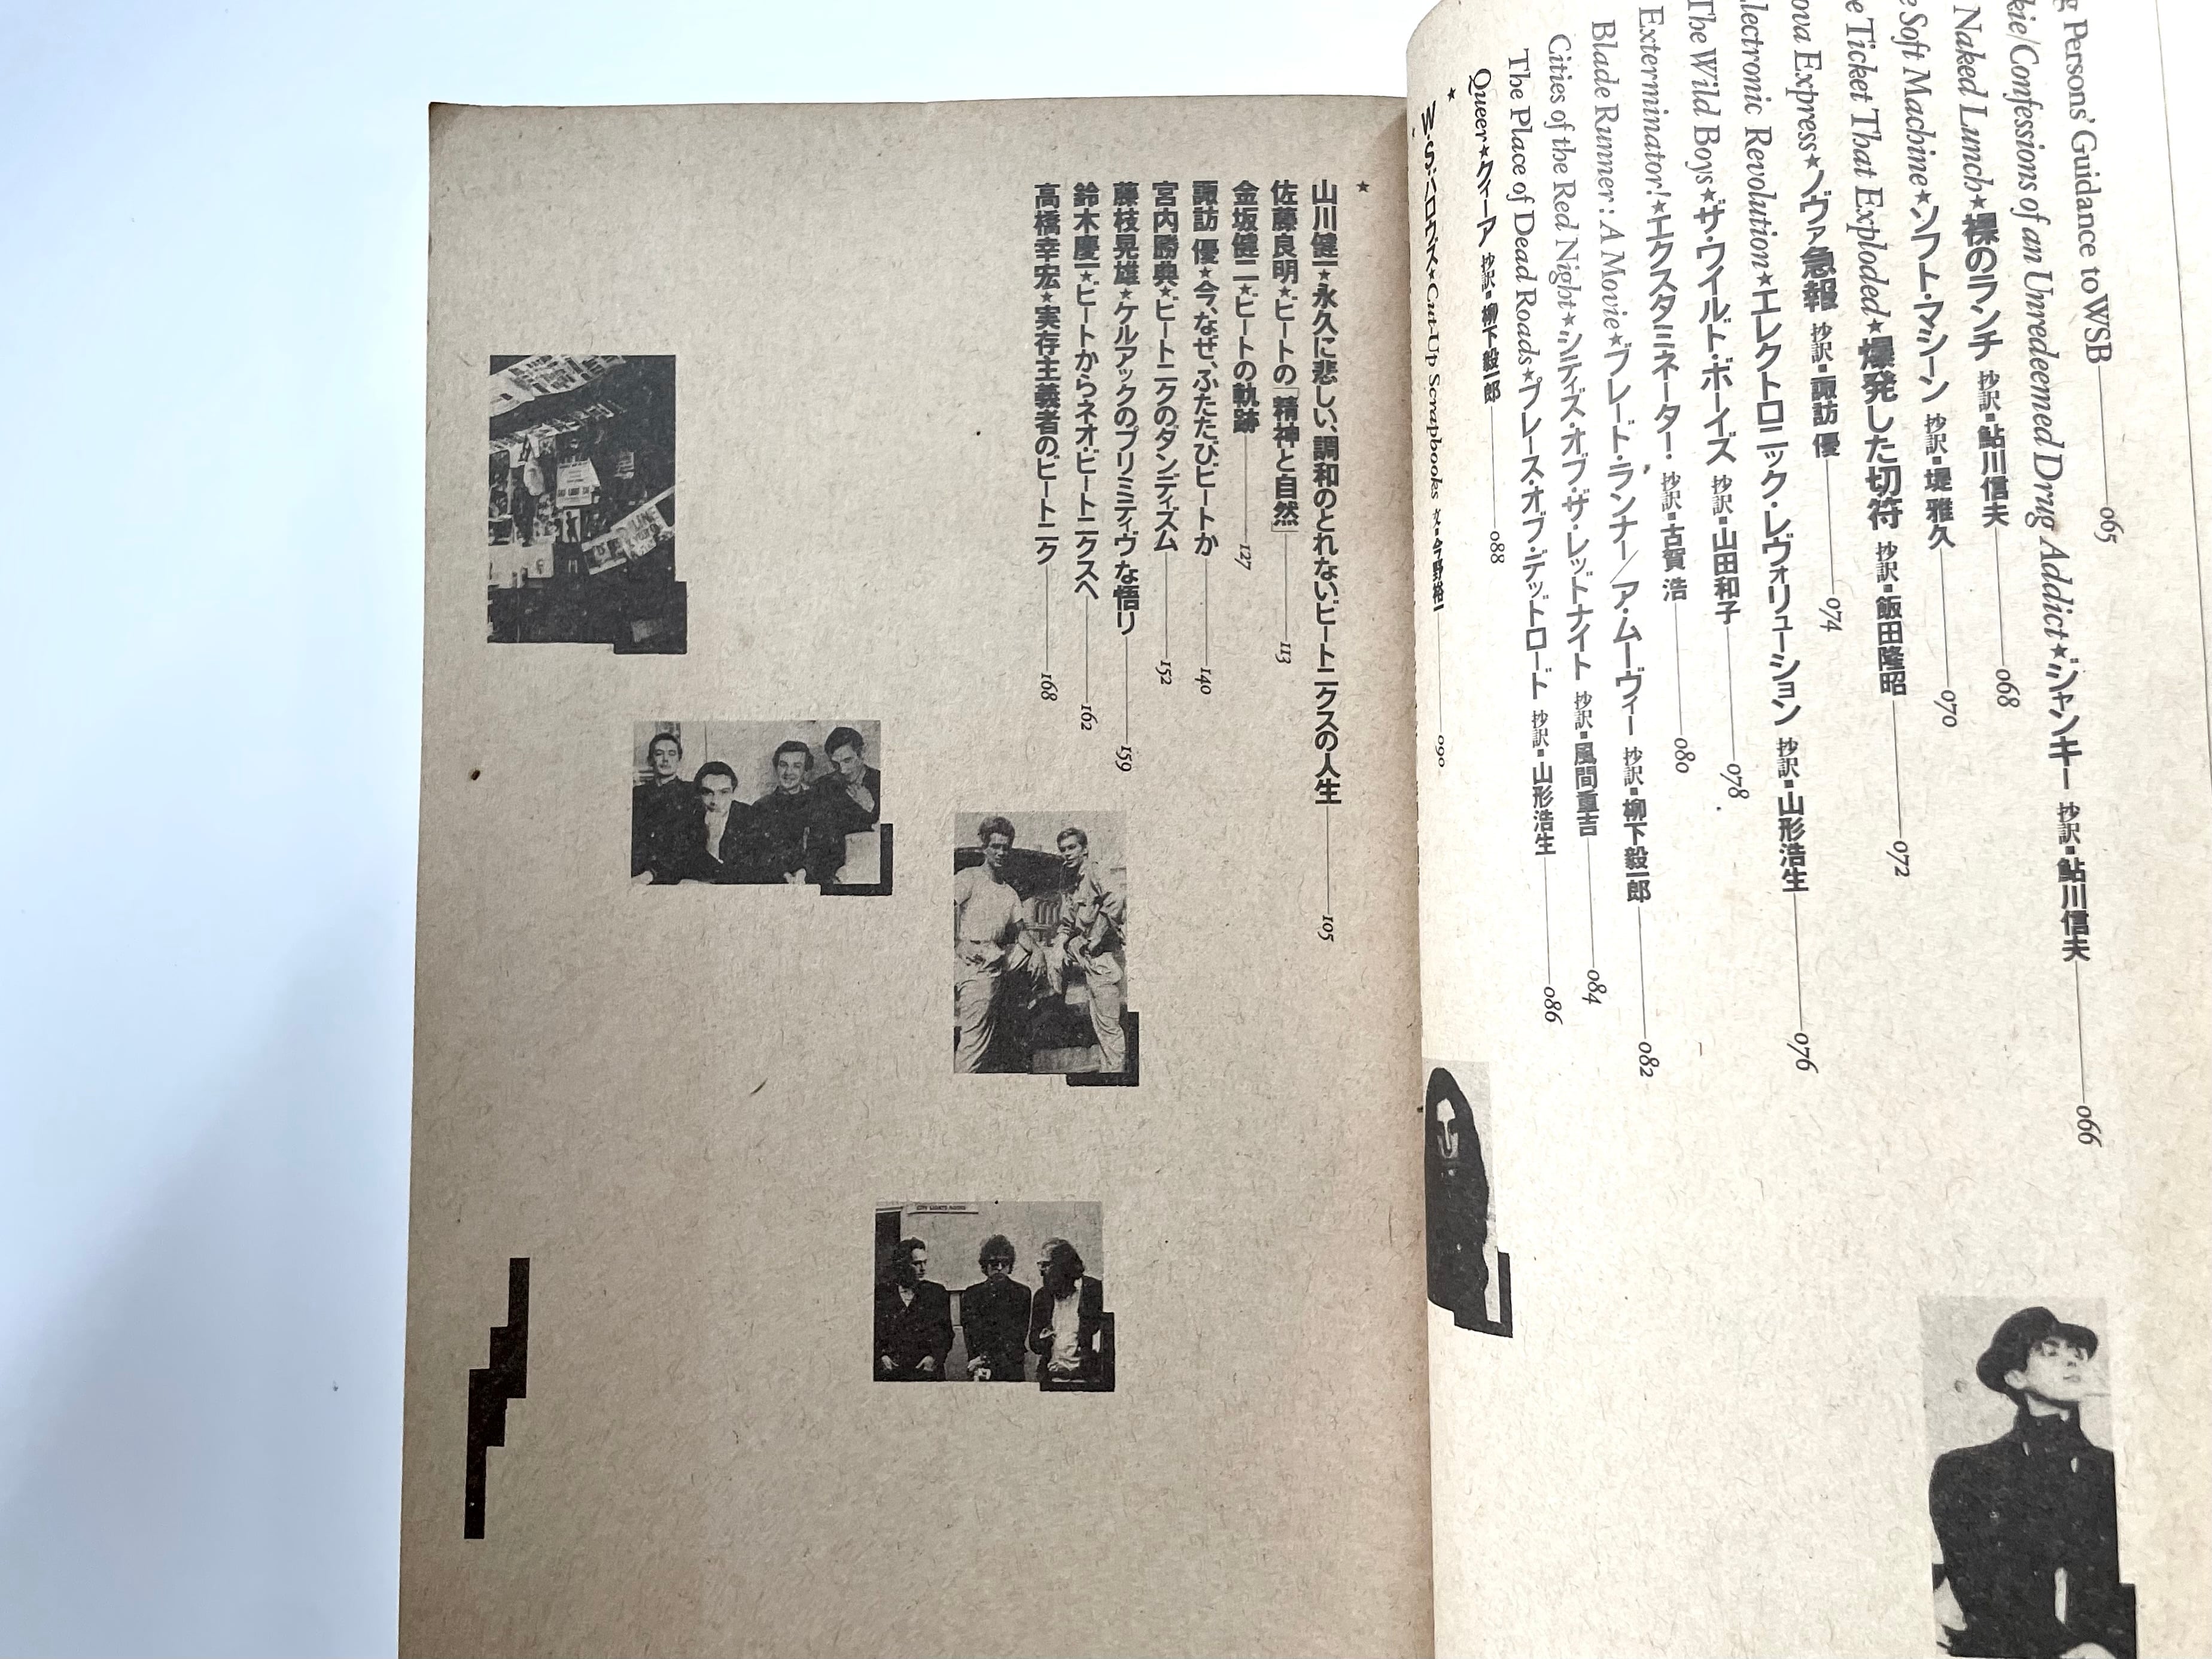 g Persons' Guidance to WSB 065
kie/Confessions of an Unredeemed Drug Addict★ジャンキー 抄訳■鮎川信夫 066
Naked Lunch★裸のランチ 抄訳■鮎川信夫 068
e Soft Machine★ソフト・マシーン 抄訳■堤 雅久 070
e Ticket That Exploded★爆発した切符 抄訳■飯田隆昭 072
ova Express★ノヴァ急報 抄訳■諏訪 優 074
lectronic Revolution★エレクトロニック・レヴォリューション 抄訳■山形浩生 076
The Wild Boys★ザ・ワイルド・ボーイズ 抄訳■山田和子 078
Exterminator!★エクスタミネーター! 抄訳■古賀 浩 080
Blade Runner: A Movie★ブレード・ランナー/ア・ムーヴィー 抄訳■柳下毅一郎 082
Cities of the Red Night★シティズ・オブ・ザ・レッドナイト 抄訳■風間重吉 084
The Place of Dead Roads★プレース・オブ・デッドロード 抄訳■山形浩生 086
Queer★クィーア 抄訳■柳下毅一郎 088
★
W・S・バロウズ★Cut-Up Scrapbooks 文■今野裕一 090
★
山川健一★永久に悲しい、調和のとれないビートニクスの人生 105
佐藤良明★ビートの「精神と自然」 113
金坂健二★ビートの軌跡 127
諏訪 優★今、なぜ、ふたたびビートか 140
宮内勝典★ビートニクのダンディズム 152
藤枝晃雄★ケルアックのプリミティヴな悟り 159
鈴木慶一★ビートからネオ・ビートニクスへ 162
高橋幸宏★実存主義者のビートニク 168